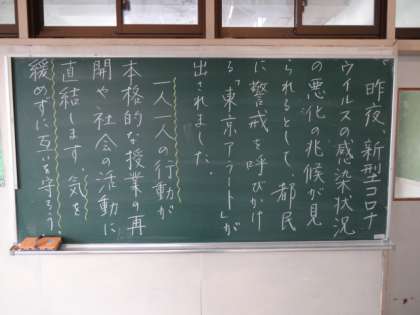 昨夜、新型コロナ
ウイルスの感染状況
の悪化の兆候が見
られるとして、都民
に警戒を呼びかけ
る「東京アラート」が
出されました。
一人一人の行動が
本格的な授業の再
開や社会の活動に
直結します。気を
緩めずに互いを守ろう。